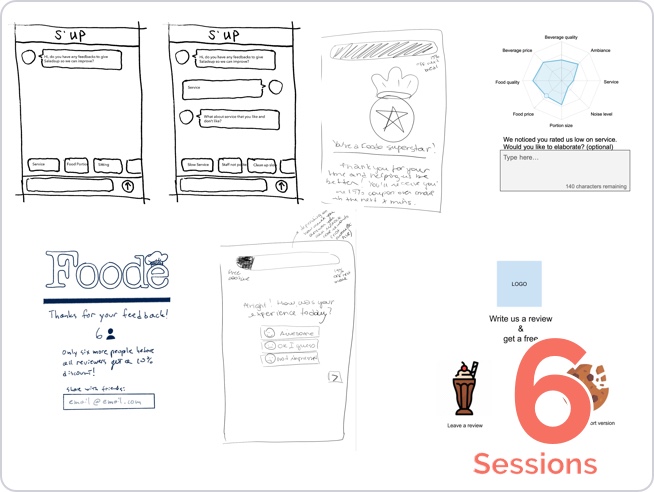 S'UP
Hi, do you have any feedbacks to give
Saladsup so we can improve?
Service
Food Portion
Editing
S'UP
Hi, do you have any feedbacks to give
Saladsup so we can improve?
Service
What about service that you like and
don't like?
Slow Service
Staff not
Close up
You're a Foode superstar!
Thank you for your
time and helping us be
better! You'll receive
a 15% coupon
in the next
Beverage quality
Beverage price
Ambiance
Food quality
Service
Food price
Noise level
Portion size
We noticed you rated us low on service.
Would you like to elaborate? (optional)
Type here...
140 characters remaining
Foode
Thanks for your feedback!
6
Only six more people before
all reviewers get a 20%
discount!
Share with friends:
email@email.com
Alright! How was your
experience today?
Awesome
OK I guess
Not impressed
LOGO
Write us a review
&
get a free
Leave a review
ort version
6
Sessions